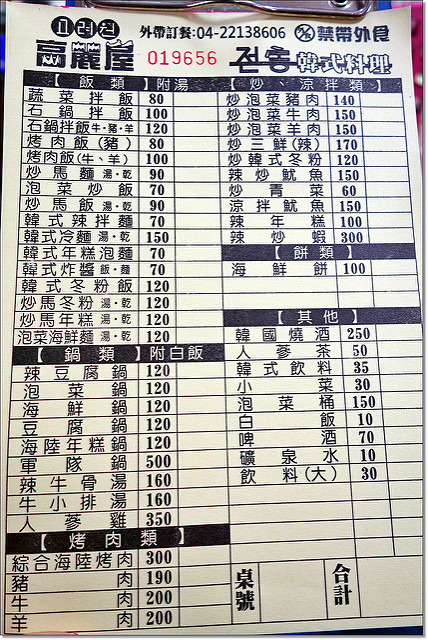 고려원
外帶訂餐:04-22138606
禁帶外食
高麗屋
019656
전통
韓式料理
【飯類】附湯
蔬菜拌飯 80
石鍋拌飯 100
石鍋拌飯 牛·豬·羊 120
烤肉飯(豬) 80
烤肉飯(牛、羊) 100
炒馬麵 湯·乾 90
泡菜炒飯 70
炒馬飯 湯·乾 90
韓式辣拌麵 70
韓式冷麵 湯·乾 150
韓式年糕泡麵 70
韓式炸醬 飯·麵 70
韓式冬粉飯 120
炒馬冬粉 湯·乾 120
炒馬年糕 湯·乾 120
泡菜海鮮麵 湯·乾 120
【鍋類】附白飯
辣豆腐鍋 120
泡菜鍋 120
海鮮鍋 120
豆腐鍋 120
海陸年糕鍋 120
軍隊鍋 500
辣牛骨湯 160
牛小排湯 160
人蔘雞 350
【烤肉類】
綜合海陸烤肉 300
豬肉 190
牛肉 200
羊肉 200
【炒、涼拌類】
炒泡菜豬肉 140
炒泡菜牛肉 150
炒泡菜羊肉 150
炒三鮮(辣) 170
炒韓式冬粉 120
辣炒魷魚 150
炒青菜 60
涼拌魷魚 150
辣年糕 100
辣炒蝦 300
【餅類】
海鮮餅 100
【其他】
韓國燒酒 250
人蔘茶 50
韓式飲料 35
小菜 30
泡菜桶 150
白飯 10
啤酒 70
礦泉水 10
飲料(大) 30
桌號
合計